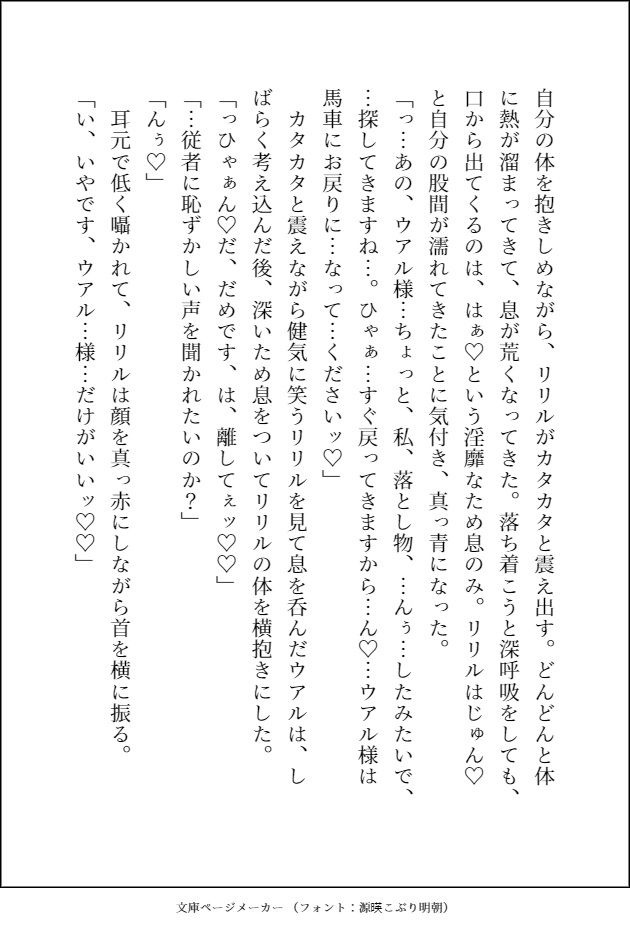 自分の体を抱きしめながら、リリルがカタカタと震え出す。どんどんと体
に熱が溜まってきて、息が荒くなってきた。落ち着こうと深呼吸をしても、
口から出てくるのは、はぁ♡という淫靡なため息のみ。リリルはじゅん♡
と自分の股間が濡れてきたことに気付き、真っ青になった。
「っ…あの、ウアル様…ちょっと、私、落とし物、…んぅ…したみたいで、
…探してきますね…。ひゃぁ…すぐ戻ってきますから…ん♡…ウアル様は
馬車にお戻りに…なって…くださいッ♡」
カタカタと震えながら健気に笑うリリルを見て息を呑んだウアルは、し
ばらく考え込んだ後、深いため息をついてリリルの体を横抱きにした。
「っひゃぁん♡だ、だめです、は、離してぇッ♡♡」
「…従者に恥ずかしい声を聞かれたいのか？」
「んぅ♡」
耳元で低く囁かれて、リリルは顔を真っ赤にしながら首を横に振る。
「い、いやです、ウアル…様…だけがいいッ♡♡」
文庫ページメーカー（フォント：源暎こぶり明朝）